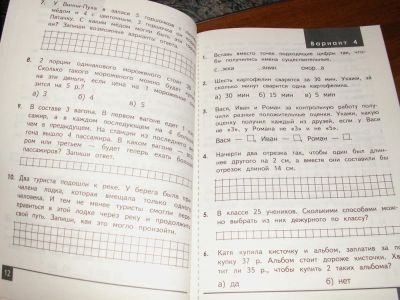 7. У Винни-Пуха в запасе 5 горшочков
мёдом и 4 с цветочным
Пятачку. С каким мёдом могли быть
ки? Запиши возможные варианты ответа.
8. 2 порции одинакового мороженого стоят
Сколько такого мороженого
на эти деньги, если цена на 1 мороженое
зится на 5 р.?
а) 3 б) 4 в) 5
9. В составе 3 вагона. В первом вагоне едет 1
сажир, а в каждом последующем на 4
чем в предыдущем. На станции из последнего
гона вышел 1 пассажир. В каком вагоне —
ром или третьем — будет теперь ехать
пассажиров? Запиши ответ.
10. Два туриста подошли к реке. У берега была
чалена лодка, которая вмещала только
человека. И тем не менее туристы смогли
правиться в этой лодке через реку и продолжить
свой путь. Запиши, как это могло произойти.
12
Вариант 4
1. Вставь вместо точек подходящие цифры так, что-
бы получились имена существительные.
2. Шесть картофелин сварятся за 30 мин. Укажи, за
сколько минут сварится одна картофелина.
а) 30 мин б) 15 мин в) 5 мин
3. Вася, Иван и Роман за контрольную работу полу-
чили разные положительные оценки. Укажи, какую
оценку получил каждый из друзей, если у Васи
не «3», у Романа не «3» и не «5».
Вася — , Иван — , Роман — .
4. Начерти два отрезка так, чтобы один был длин-
нее другого на 2 см, а вместе они составили бы
отрезок длиной 14 см.
5. В классе 25 учеников. Сколькими способами мож-
но выбрать из них дежурного по классу?
6. Катя купила кисточку и альбом, заплатив за по-
купку 37 р. Альбом стоит дороже кисточки. Хва-
тит ли 35 р., чтобы купить 2 таких альбома?
а) да б) нет